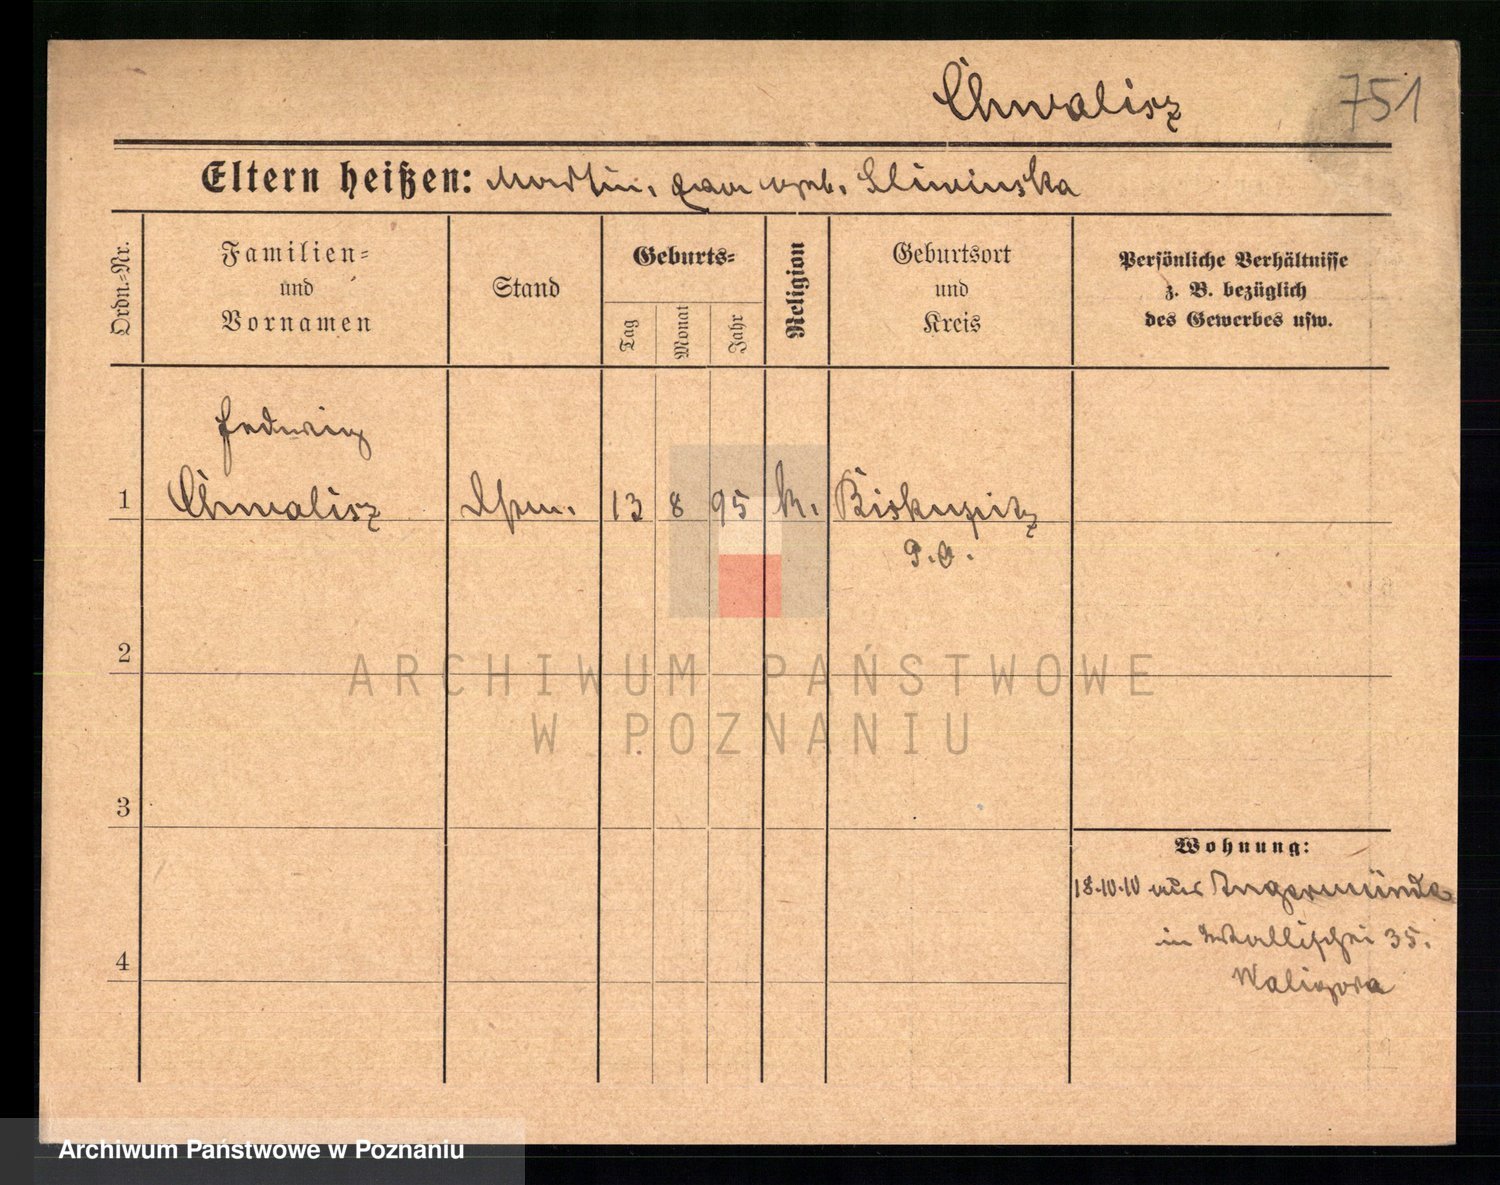 Chwalisz 751
Eltern heißen: Martin, geb. Sliwinska
Ordn.=Nr.
Familien=
und
Vornamen
Stand
Geburts=
Tag
Monat
Jahr
Religion
Geburtsort
und
Kreis
Persönliche Verhältnisse
z. B. bezüglich
des Gewerbes usw.
Hedwig
1 Chwalisz 13 8 95 k. Biskupitz
P. O.
2
ARCHIWUM PAŃSTWOWE
W POZNANIU
3
Wohnung:
18.10.10 aus Angermünde
in Wallischei 35.
4
Waligora
Archiwum Państwowe w Poznaniu